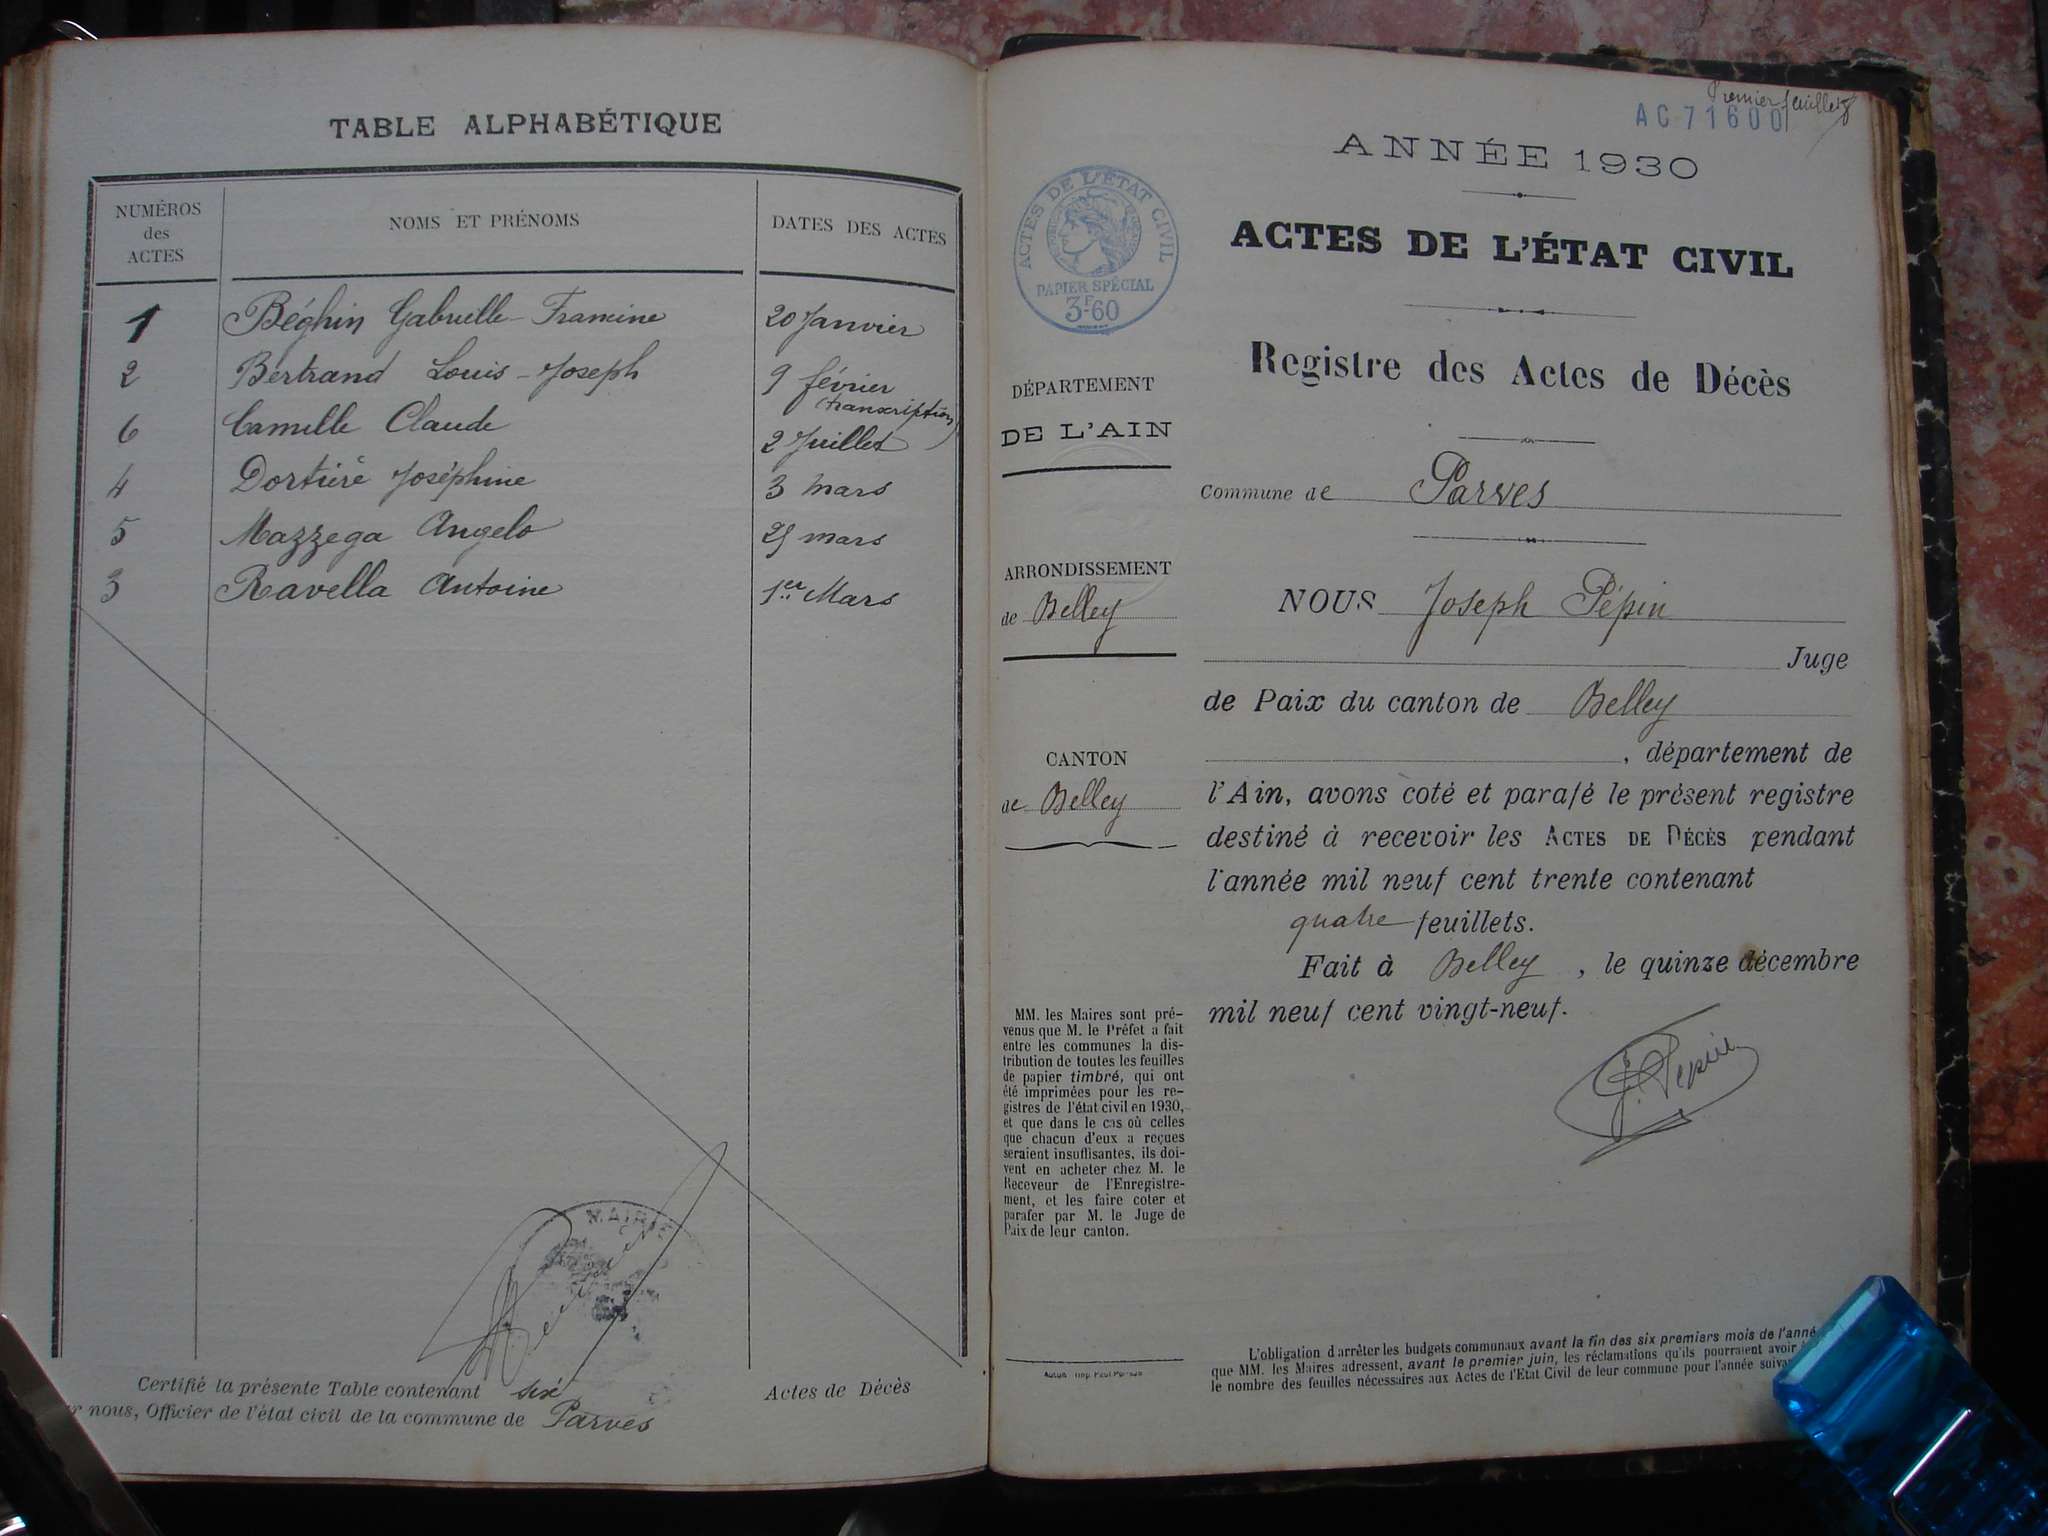 TABLE ALPHABÉTIQUE
NUMÉROS des ACTES
NOMS ET PRÉNOMS
DATES DES ACTES
1 Béghin Gabrielle-Francine 20 Janvier
2 Bertrand Louis-Joseph 9 février
(transcription)
6 Camille Claude 2 Juillet
4 Dortière Joséphine 3 mars
5 Mazzega Angelo 25 mars
3 Ravella Antoine 1er Mars
MAIRIE
Certifié la présente Table contenant six Actes de Décès
nous, Officier de l'état civil de la commune de Parves
Premier feuillet
AC 71600
ANNÉE 1930
ACTES DE L'ÉTAT CIVIL
PAPIER SPÉCIAL
3F60
ACTES DE L'ÉTAT CIVIL
Registre des Actes de Décès
DÉPARTEMENT
DE L'AIN
Commune de Parves
ARRONDISSEMENT
de Belley
NOUS Joseph Pépin
Juge
de Paix du canton de Belley
CANTON
de Belley
, département de
l'Ain, avons coté et parafé le présent registre
destiné à recevoir les ACTES DE DÉCÈS pendant
l'année mil neuf cent trente contenant
quatre feuillets.
Fait à Belley, le quinze décembre
mil neuf cent vingt-neuf.
J. Pépin
MM. les Maires sont pré-
venus que M. le Préfet a fait
entre les communes la dis-
tribution de toutes les feuilles
de papier timbré, qui ont
été imprimées pour les re-
gistres de l'état civil en 1930,
et que dans le cas où celles
que chacun d'eux a reçues
seraient insuffisantes, ils doi-
vent en acheter chez M. le
Receveur de l'Enregistre-
ment, et les faire coter et
parafer par M. le Juge de
Paix de leur canton.
L'obligation d'arrêter les budgets communaux avant la fin des six premiers mois de l'anné
que MM. les Maires adressent, avant le premier juin, les réclamations qu'ils pourraient avoir
le nombre des feuilles nécessaires aux Actes de l'Etat Civil de leur commune pour l'année suiva